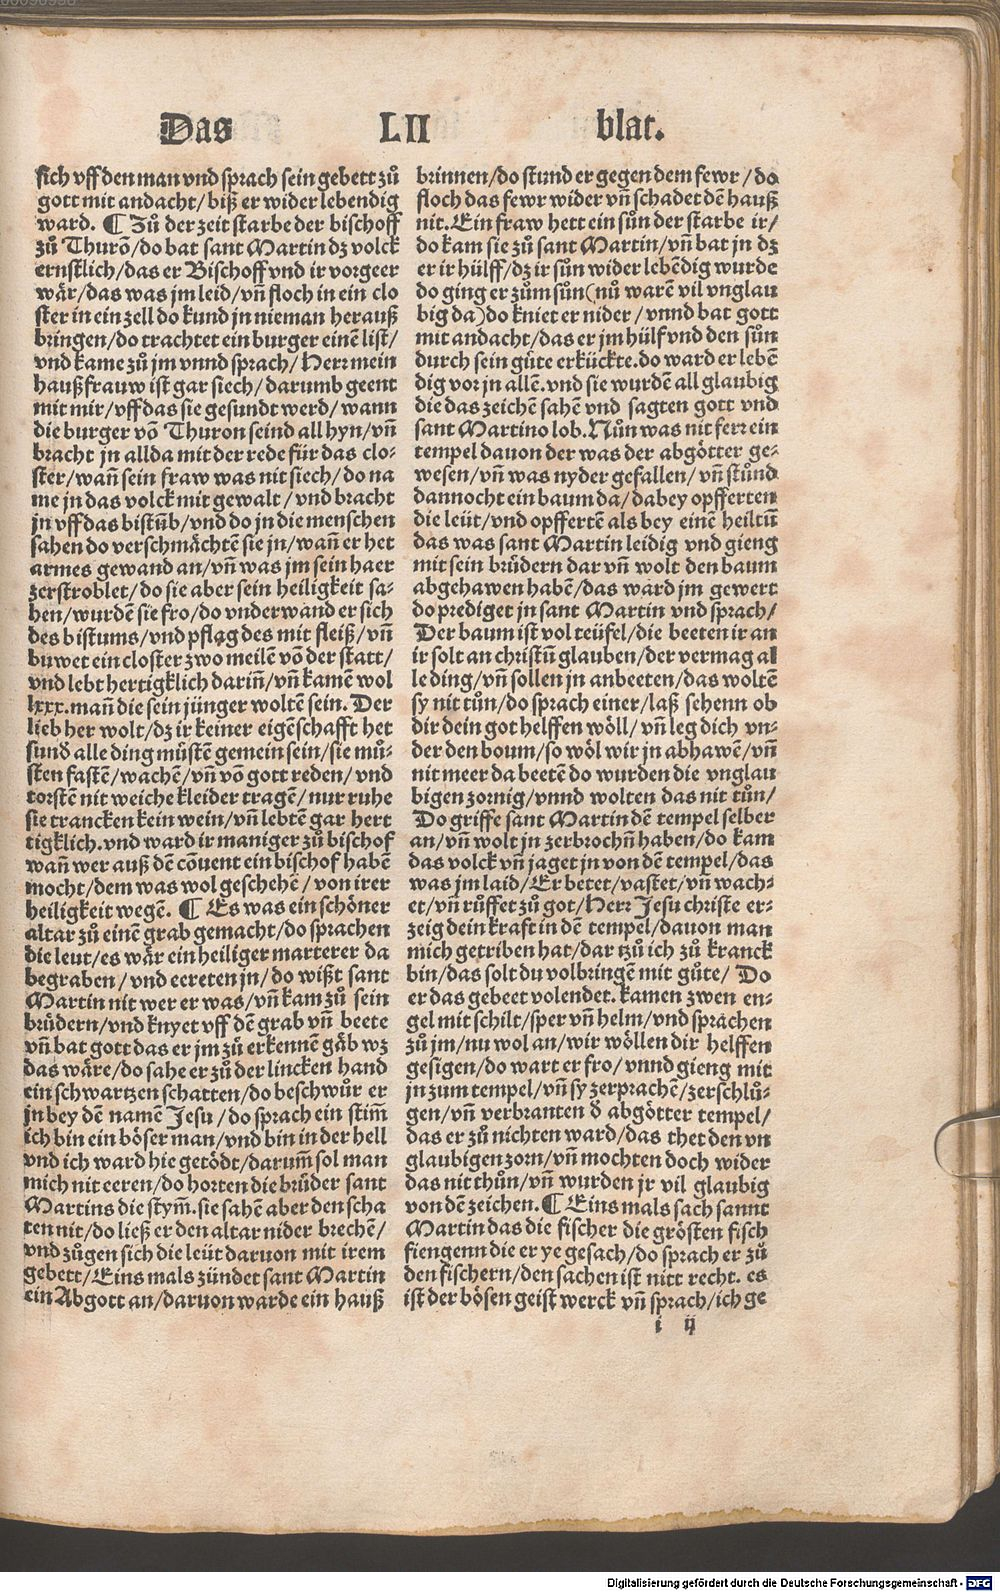 Das LII blat.
sich vff den man vnd sprach sein gebett zů
gott mit andacht/ biß er wider lebendig
ward. ¶ Zů der zeit starbe der bischoff
zů Thurō/do bat sant Martin dz volck
ernstlich/das er Bischoff vnd ir vorgeer
wär/das was jm leid/vñ floch in ein clo
ster in ein zell do kund jn nieman herauß
bringen/do trachtet ein burger einē list/
vnd kame zů jm vnnd sprach/ Herr mein
haußfrauw ist gar siech/ darumb geent
mit mir/vff das sie gesundt werd/ wann
die burger vō Thuron seind all hyn/vñ
bracht jn allda mit der rede für das clo-
ster/wañ sein fraw was nit siech/do na
me jn das volck mit gewalt/ vnd bracht
jn vff das bistūb/vnd do jn die menschen
sahen do verschmächtē sie jn/wañ er het
armes gewand an/vñ was jm sein haer
zerstroblet/do sie aber sein heiligkeit sa-
hen/wurdē sie fro/do vnderwand er sich
des bistums/vnd pflag des mit fleiß/vñ
buwet ein closter zwo meilē vō der statt/
vnd lebt hertigklich dariñ/vñ kamē wol
lxxx.mañ die sein jünger woltē sein. Der
lieb her wolt/dz ir keiner eigēschafft het
sund̄ alle ding můstē gemein sein/sie mů-
sten fastē/wachē/vñ vō gott reden/vnd
torstē nit weiche kleider tragē/nur ruhe
sie trancken kein wein/vñ lebtē gar hert
tigklich.vnd ward ir maniger zů bischof
wañ wer auß dē cōuent ein bischof habē
mocht/dem was wol geschehē/von irer
heiligkeit wegē. ¶ Es was ein schöner
altar zů einē grab gemacht/do sprachen
die leut/es wär ein heiliger marterer da
begraben/vnd eereten jn/do wißt sant
Martin nit wer er was/vñ kam zů sein
brůdern/vnd knyet vff dē grab vñ beete
vñ bat gott das er jm zů erkennē gäb wz
das wäre/do sahe er zů der lincken hand
ein schwartzen schatten/do beschwůr er
jn bey dē namē Jesu/do sprach ein stim̄
ich bin ein böser man/vnd bin in der hell
vnd ich ward hie getödt/darum̄ sol man
mich nit eeren/do horten die brůder sant
Martins die stym̄.sie sahē aber den scha
ten nit/do ließ er den altar nider brechē/
vnd zůgen sich die leüt daruon mit irem
gebett/Eins mals zündet sant Martin
ein Abgott an/daruon warde ein hauß
brinnen/do stund er gegen dem fewr/do
floch das fewr wider vñ schadet dē hauß
nit.Ein fraw hett ein sůn der starbe ir/
do kam sie zů sant Martin/vñ bat jn dz
er ir hülff/dz ir sůn wider lebēdig wurde
do ging er zům sůn(nů warē vil vnglau
big da)do kniet er nider/vnnd bat gott
mit andacht/das er jm hülf vnd den sůn
durch sein gůte erkückte.do ward er lebē
dig vor jn allē.vnd sie wurdē all glaubig
die das zeichē sahē vnd sagten gott vnd
sant Martino lob.Nůn was nit ferr ein
tempel dauon der was der abgötter ge-
wesen/vñ was nyder gefallen/vñ stůnd
dannocht ein baum da/dabey opfferten
die leüt/vnd opffertē als bey einē heiltū
das was sant Martin leidig vnd gieng
mit sein brůdern dar vñ wolt den baum
abgehawen habē/das ward jm gewert
do prediget jn sant Martin vnd sprach/
Der baum ist vol teüfel/die beeten ir an
ir solt an christū glauben/der vermag al
le ding/vñ sollen jn anbeeten/das woltē
sy nit tůn/do sprach einer/laß sehenn ob
dir dein got helffen wöll/vñ leg dich vn-
der den boum/so wöl wir jn abhawē/vñ
nit meer da beetē do wurden die vnglau
bigen zornig/vnnd wolten das nit tůn/
Do griffe sant Martin dē tempel selber
an/vñ wolt jn zerbrochñ haben/do kam
das volck vñ jaget jn von dē tempel/das
was jm laid/Er betet/vastet/vñ wach-
et/vñ růffet zů got/Herr Jesu christe er-
zeig dein kraft in dē tempel/dauon man
mich getriben hat/dar tzů ich zů kranck
bin/das solt du volbringē mit gůte/ Do
er das gebeet volendet.kamen zwen en-
gel mit schilt/sper vñ helm/vnd sprachen
zů jm/nu wol an/wir wöllen dir helffen
gesigen/do wart er fro/vnnd gieng mit
jn zum tempel/vñ sy zerprachē/zerschlů-
gen/vñ verbranten d̄ abgötter tempel/
das er zů nichten ward/das thet den vn
glaubigen zorn/vñ mochten doch wider
das nit thůn/vñ wurden jr vil glaubig
von dē zeichen.¶ Eins mals sach sannt
Martin das die fischer die grösten fisch
fiengenn die er ye gesach/do sprach er zů
den fischern/den sachen ist nitt recht. es
ist der bösen geist werck vñ sprach/ich ge
i ij
Digitalisierung gefördert durch die Deutsche Forschungsgemeinschaft - DFG